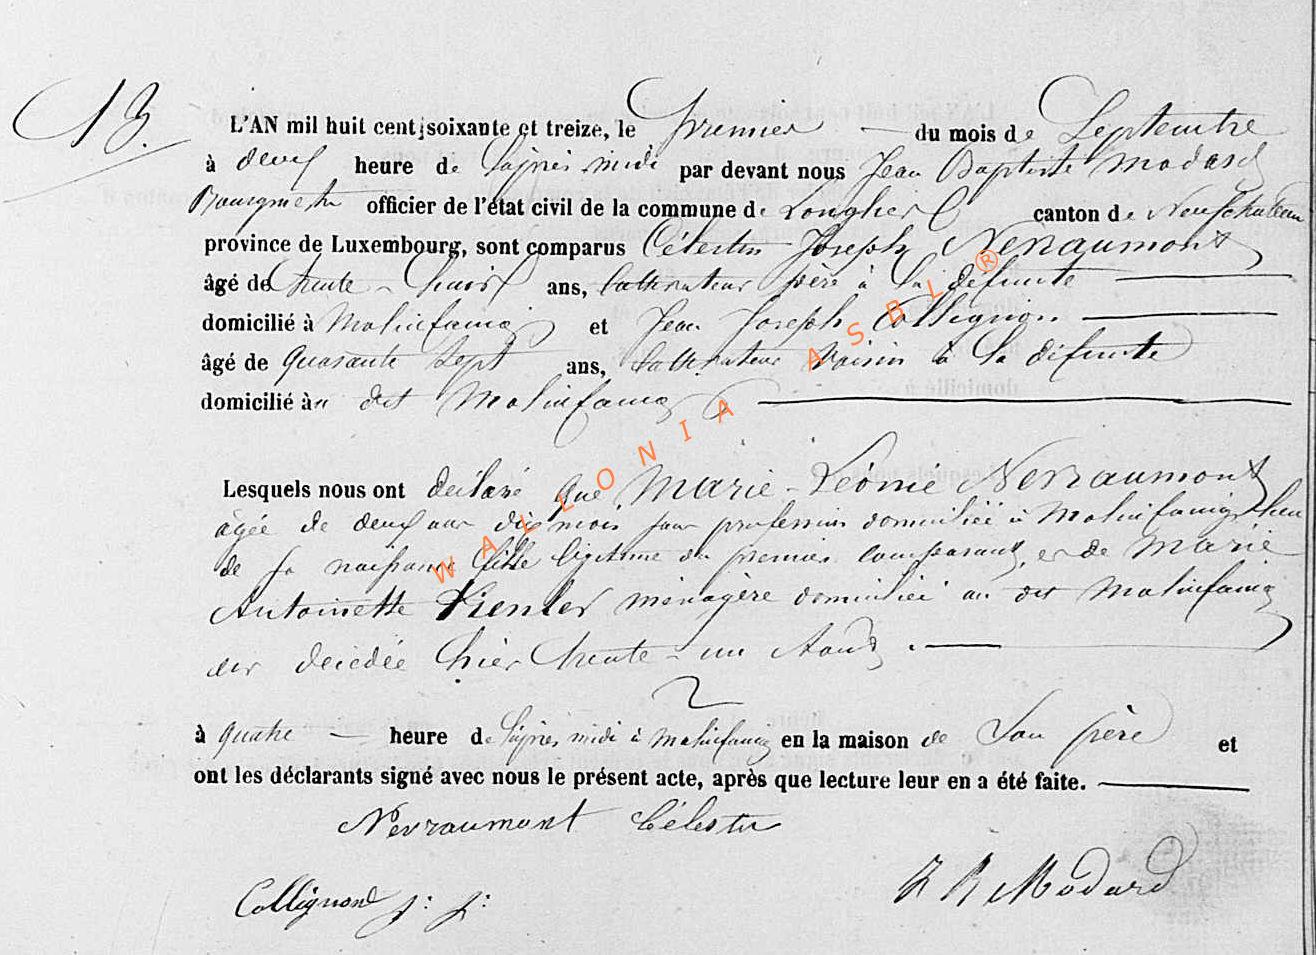 13.
L'AN mil huit cent soixante et treize, le premier du mois de Septembre
à deux heure de l'après midi par devant nous Jean Baptiste Modard
Bourgmestre officier de l'état civil de la commune de Longlier canton de Neufchateau
province de Luxembourg, sont comparus Célestin Joseph Nevraumont
âgé de trente-trois ans, cultivateur père à la défunte
domicilié à Molinfaing et Jean Joseph Collignon
âgé de quarante sept ans, cultivateur voisin à la défunte
domicilié à dit Molinfaing
Lesquels nous ont déclaré que Marie-Léonie Nevraumont
âgée de deux ans dix mois sans profession domiciliée à Molinfaing lieu
de sa naissance fille légitime du premier comparant, et de Marie
Antoinette ménagère domiciliée au dit Molinfaing
est décédée hier trente-un Aout.
à quatre heure de l'après midi à Molinfaing en la maison de Son père et
ont les déclarants signé avec nous le présent acte, après que lecture leur en a été faite.
Nevraumont Célestin
J B Modard
Collignon j: j:
WALLONIA ASBL ®